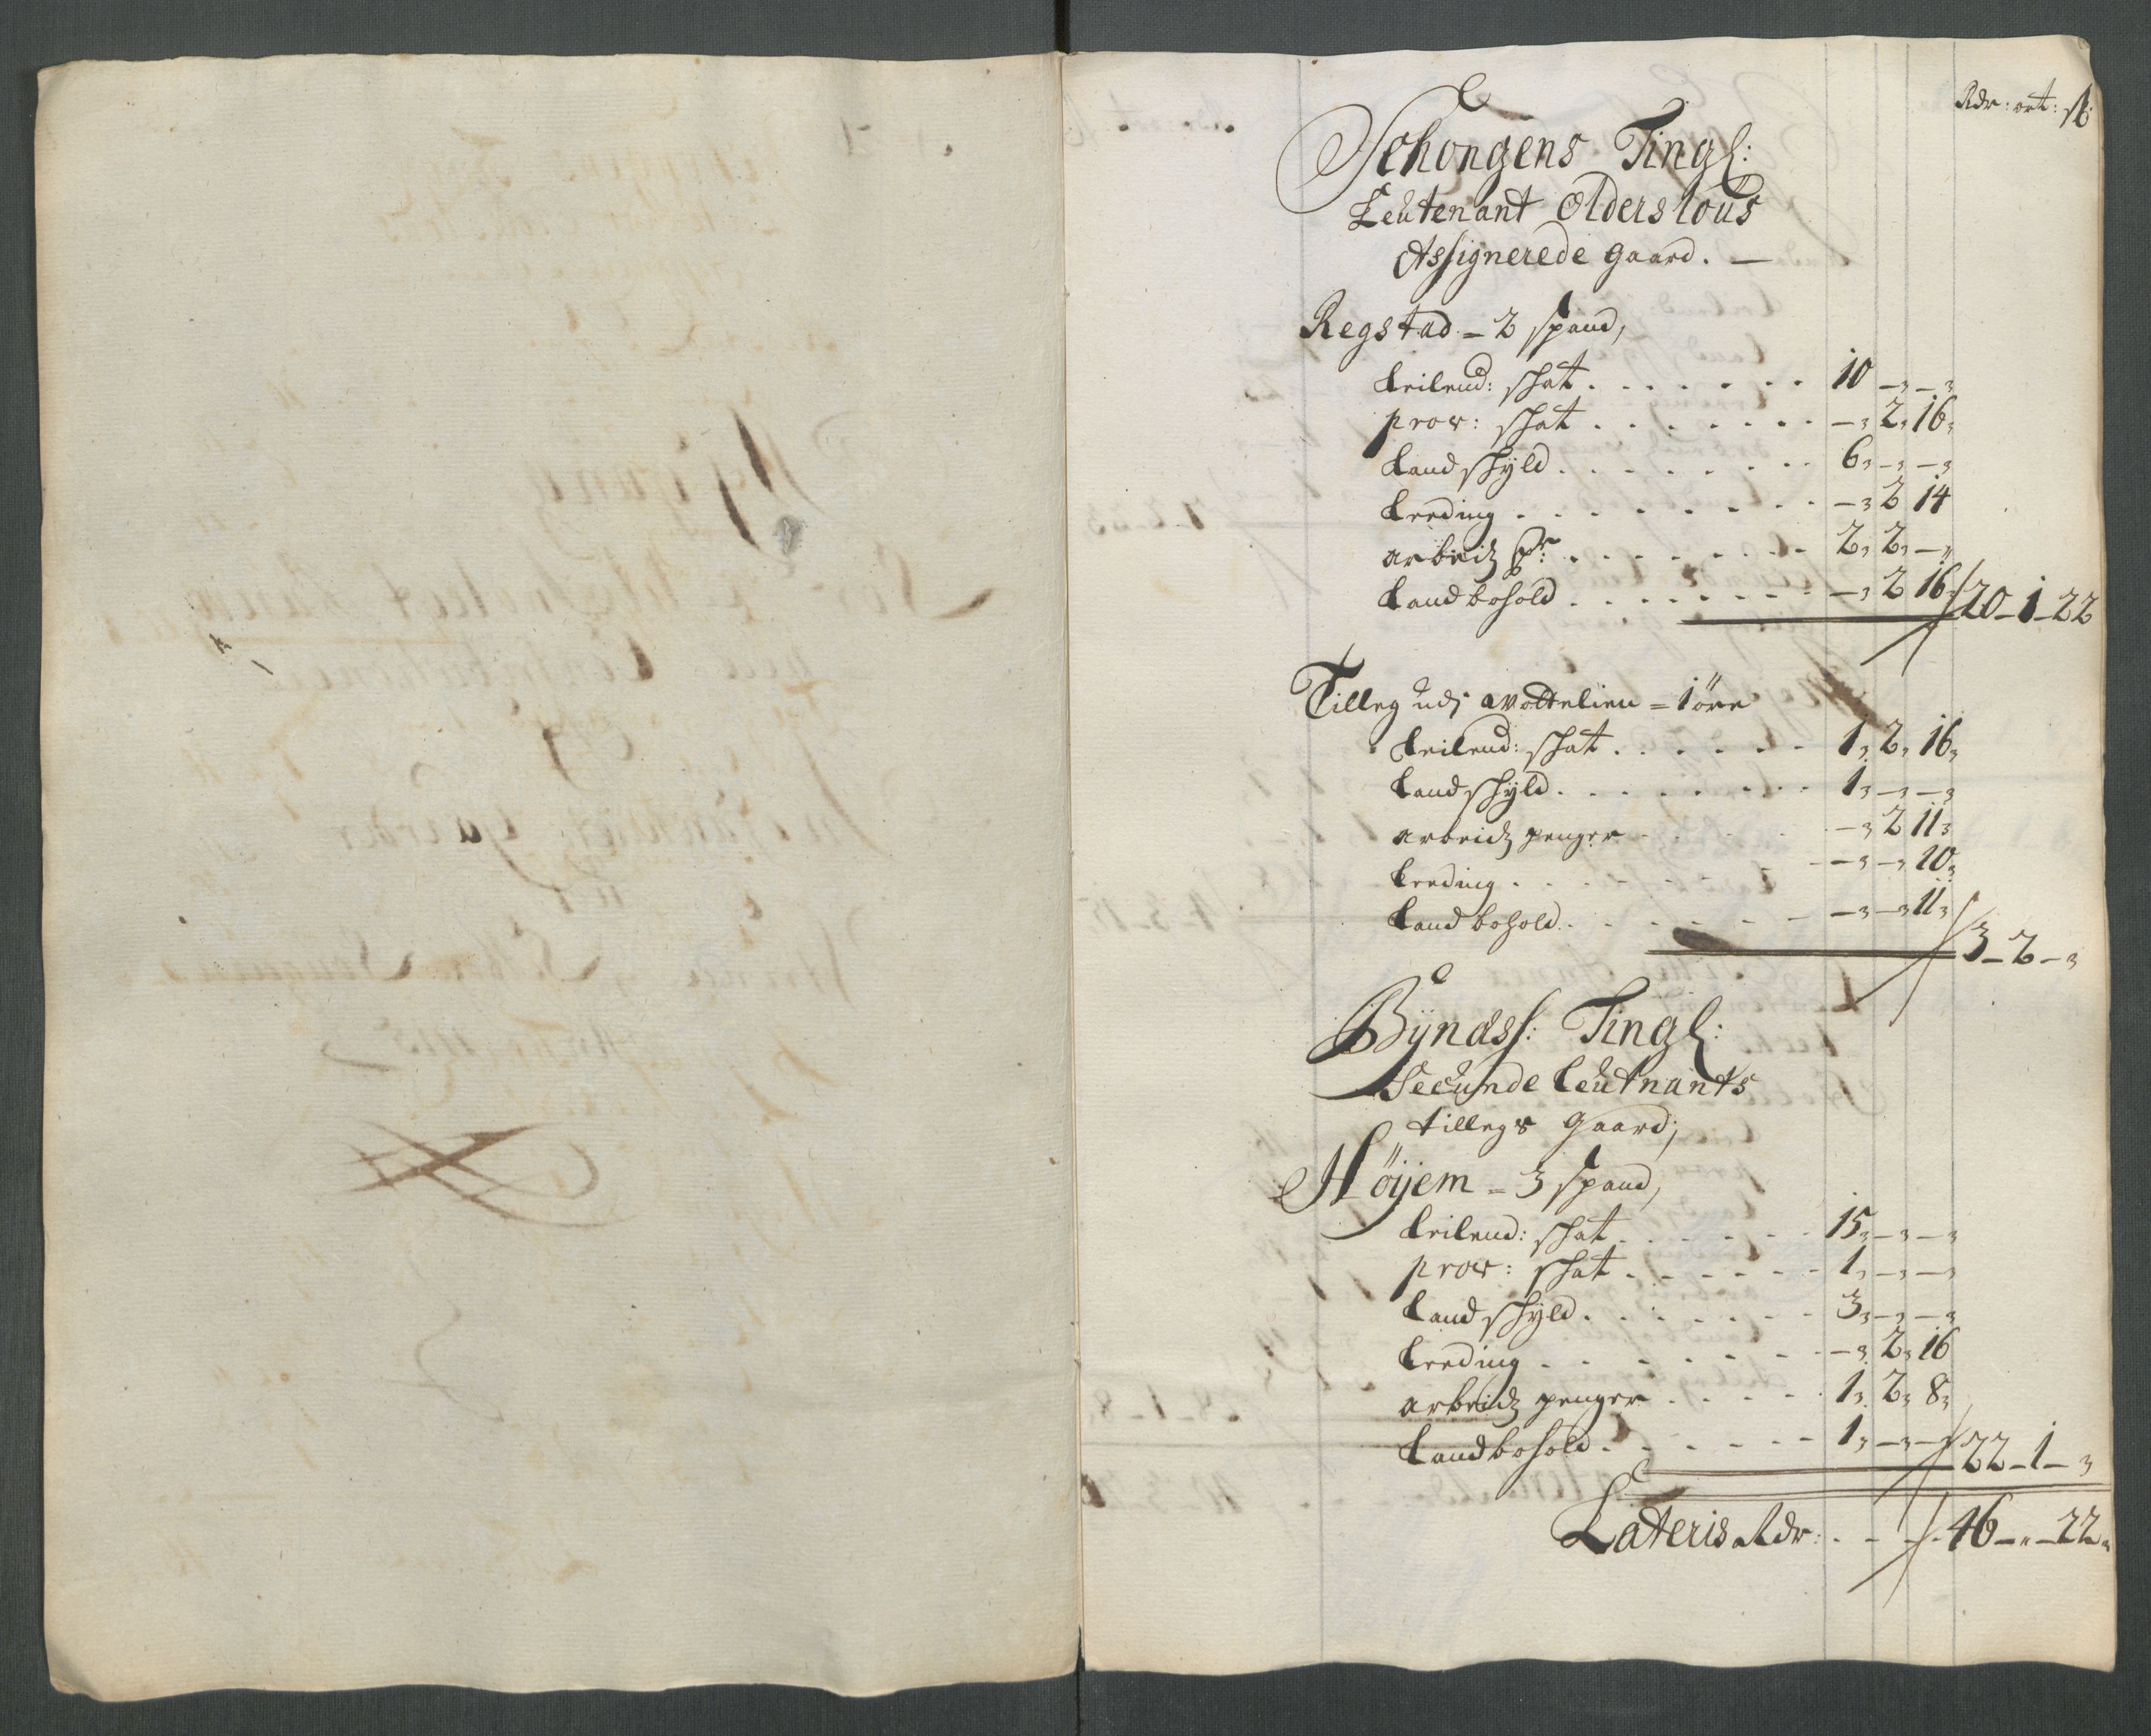 Rdr: ort: sk
Schongens Tingl:
Leutenant Olderslous
Assignerede gaard. —
Regstad – 2 spand,
Leilend: skat . . . . . . . 10 – –
prov: skat . . . . . . . – 2 16
Land skyld . . . . . . . . 6 – –
Leeding . . . . . . . . – 2 14
arbeidz pr: . . . . . . . . 2 2 –
Landbohold . . . . . . . – 2 16 / 20 – 1 – 22
Tilleg udj = 1 öre
Leilend: skat . . . . . . 1 2 16
Land skyld . . . . . . . . 1 – –
arbeidz penger . . . . – 2 11
Leeding . . . . . . . – – 10
Land bohold . . . . . . – – 11 / 3 – 2 –
Bÿndss: Tingl:
Secunde Leutnants
tillegs gaard;
Höijem – 3 spand,
Leilend: skat . . . . . . 15 – –
prov: skat . . . . . . 1 – –
Land skyld . . . . . . . 3 – –
Leeding . . . . . . . – 2 16
arbeidz penger . . . . 1 2 8
Landbohold . . . . . . 1 – – / 22 – 1 –
Lateris Rdr: . . . . 46 – „ – 22